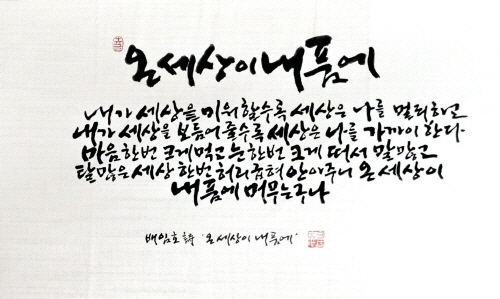 온 세상이 내 품에
내가 세상을 미워할수록 세상은 나를 멀리하고
내가 세상을 보듬어 줄수록 세상은 나를 가까이 한다.
마음 한번 크게 먹고 눈 한번 크게 떠서 말 많고
탈 많은 세상 한번 허리 굽혀 안아주니 온 세상이
내 품에 머무는구나
배임호 詩 '온 세상이 내 품에'